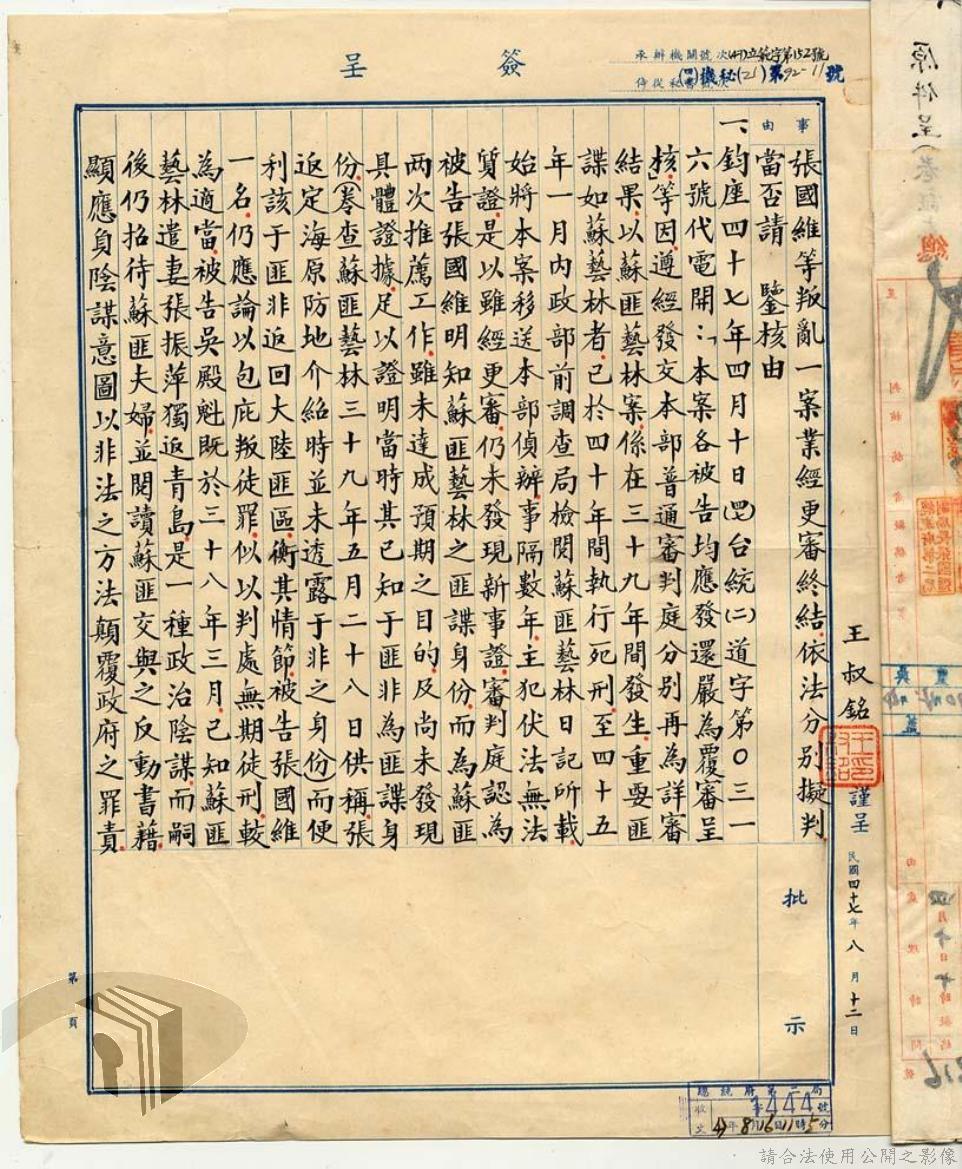 簽呈
承辦機關號次(47)立範字第152號
侍從秘書號次 機秘(21)第92-11號
事由
張國維等叛亂一案業經更審終結依法分別擬判
當否請　鑒核由
一、鈞座四十七年四月十日(四七)台統(二)道字第〇三一
六號代電開：「本案各被告均應發還嚴為覆審呈
核」等因遵經發交本部普通審判庭分別再為詳審
結果以蘇匪藝林案係在三十九年間發生重要匪
諜如蘇藝林者已於四十年間執行死刑至四十五
年一月內政部前調查局檢閱蘇匪藝林日記所載
始將本案移送本部偵辦事隔數年主犯伏法無法
質證是以雖經更審仍未發現新事證審判庭認為
被告張國維明知蘇匪藝林之匪諜身份而為蘇匪
兩次推薦工作雖未達成預期之目的及尚未發現
具體證據足以證明當時其已知于匪非為匪諜身
份(卷查蘇匪藝林三十九年五月二十八日供稱張
返定海原防地介紹時並未透露于非之身份)而便
利該于匪非返回大陸匪區衡其情節被告張國維
一名仍應論以包庇叛徒罪似以判處無期徒刑較
為適當被告吳殿魁既於三十八年三月已知蘇匪
藝林遣妻張振萍獨返青島是一種政治陰謀而嗣
後仍招待蘇匪夫婦並閱讀蘇匪交與之反動書籍
顯應身陰謀意圖以非法之方法顛覆政府之罪責
批示
王叔銘謹呈
民國四十七年八月十二日
第　頁
總統府第二局
收文
字1444號
47年8月16日11時5分
原件呈
請合法使用公開之影像